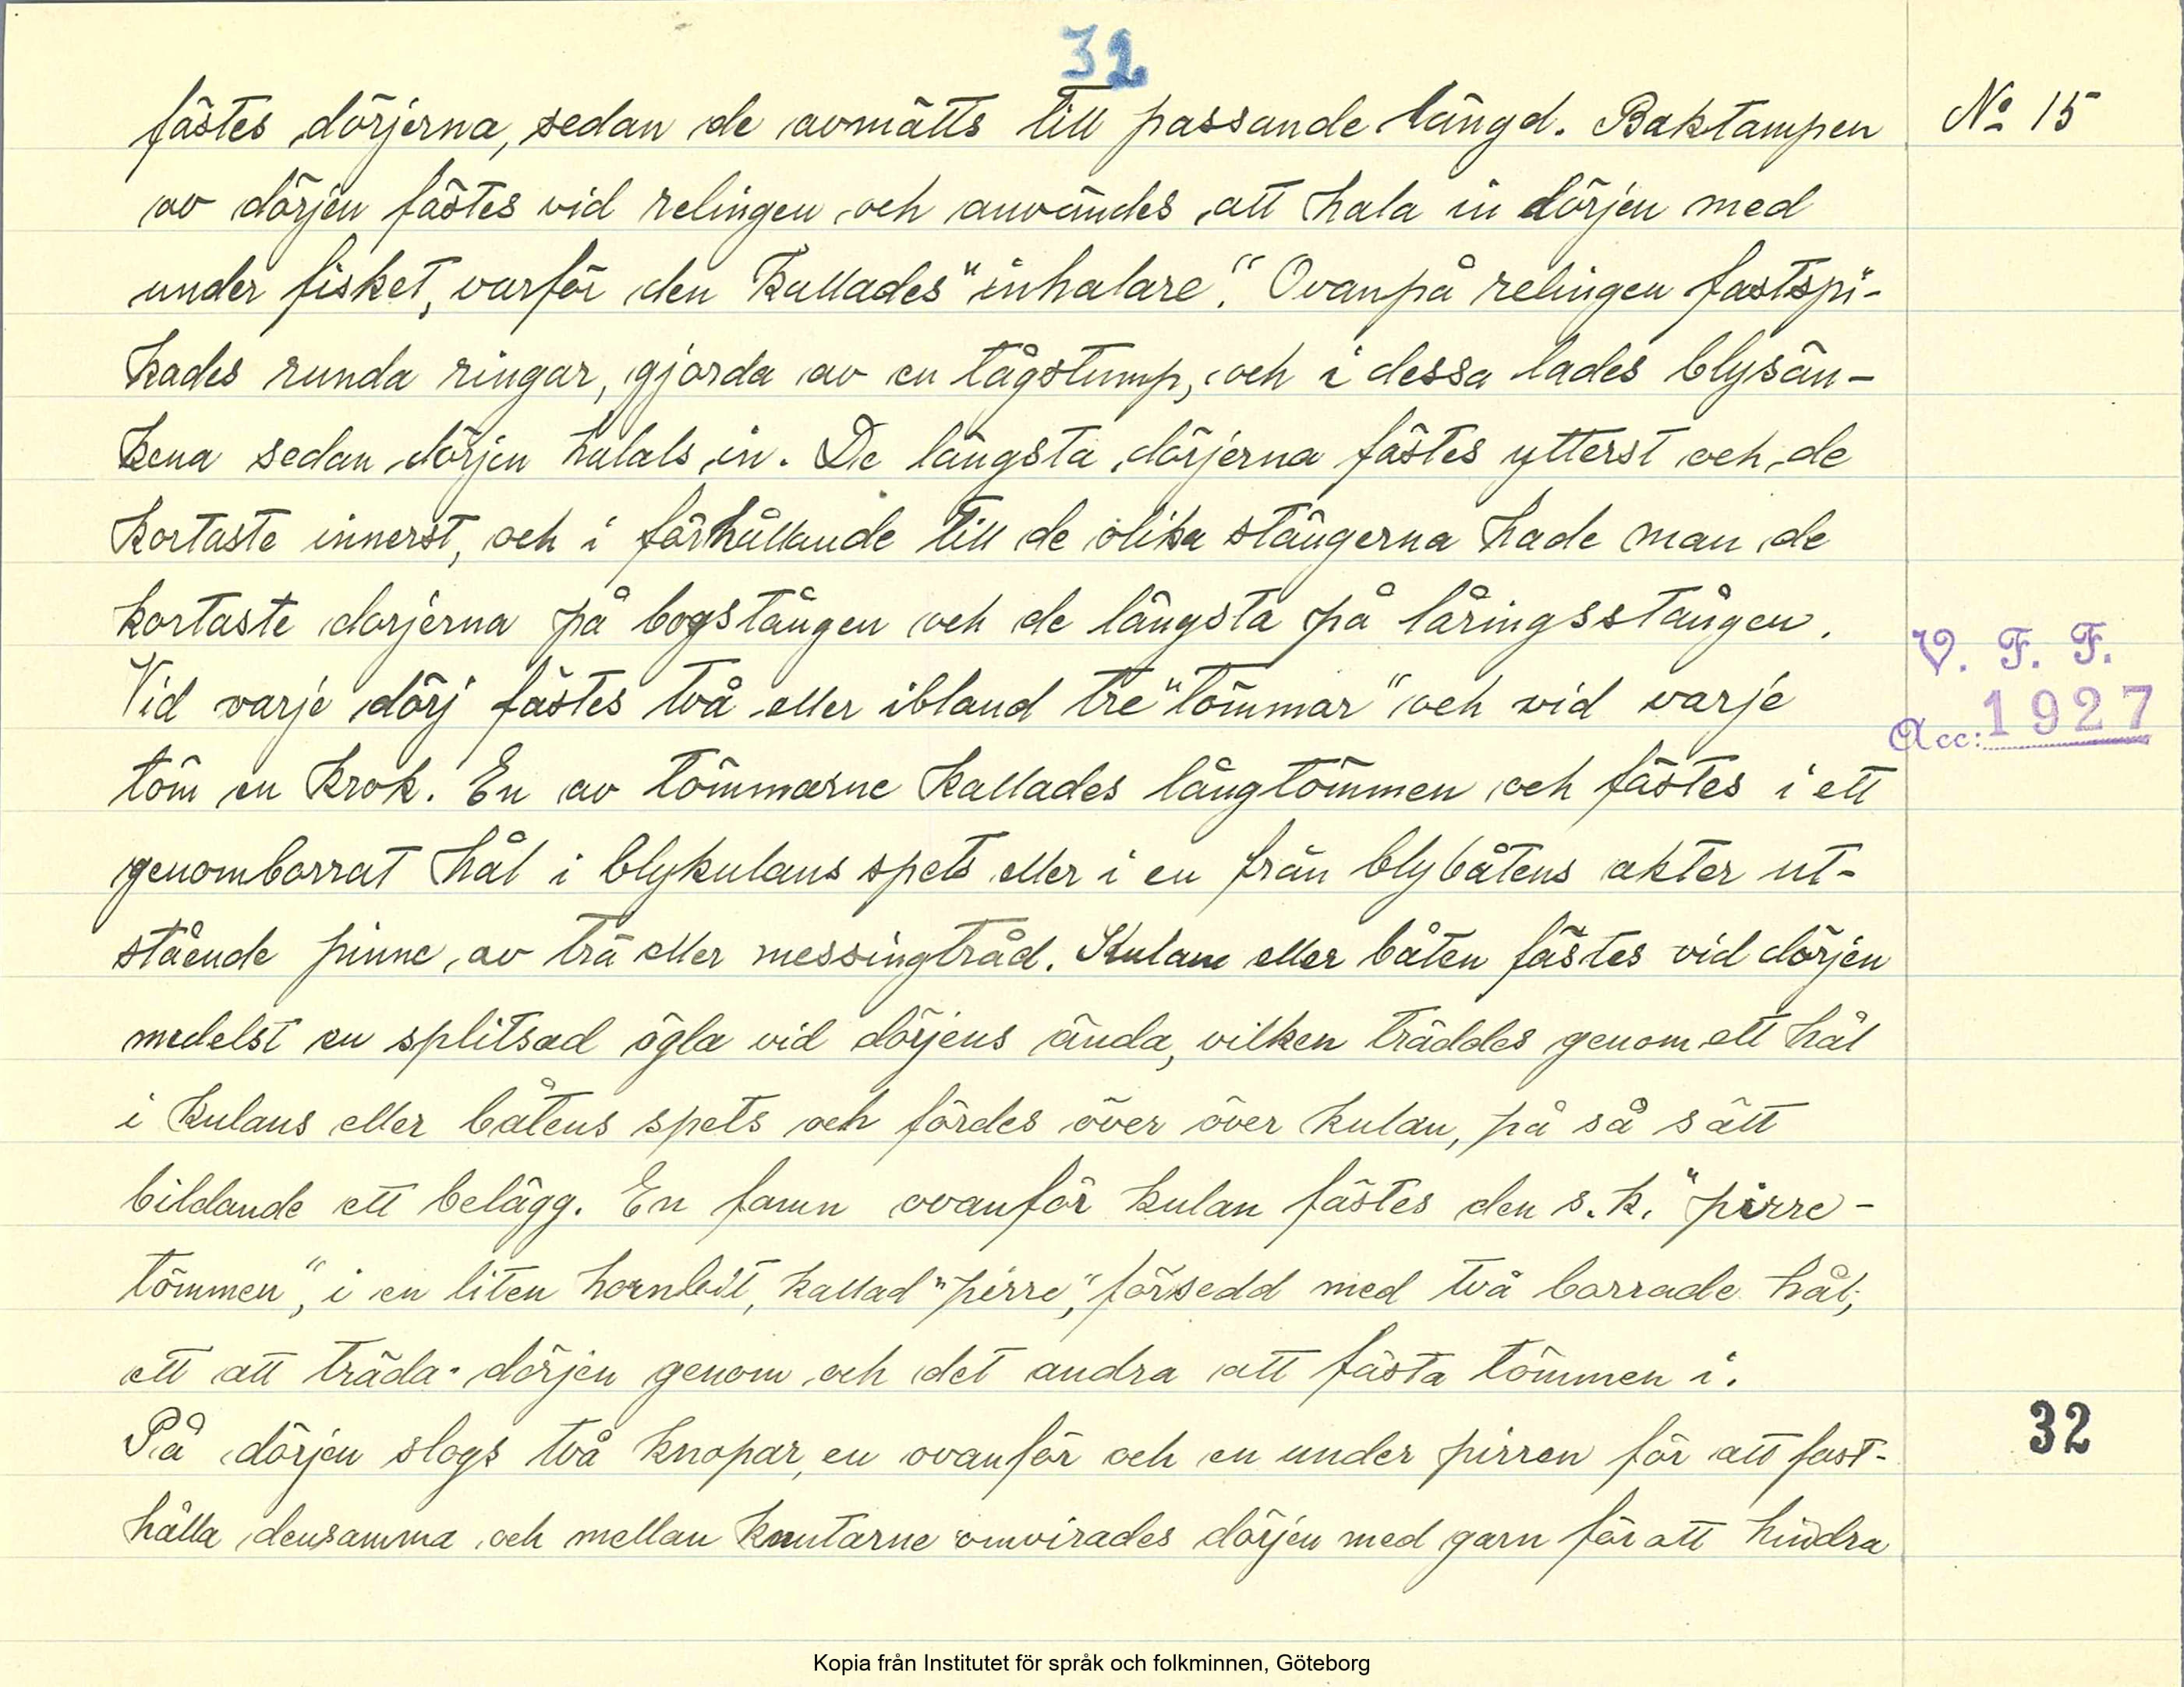 32
fästes dörjerna, sedan de avmätts till passande längd. Baktampen
Nº 15
av dörjen fästes vid relingen och användes att hala in dörjen med
under fisket, varför den kallades "inhalare". Ovanpå relingen fastspi-
kades runda ringar, gjorda av en tågstump, och i dessa lades blysän-
kena sedan dörjen halats in. De längsta dörjerna fästes ytterst och de
kortaste innerst, och i förhållande till de olika stängerna hade man de
kortaste dorjerna på bogstången och de längsta på låringsstången.
V. F. F.
Vid varje dörj fästes två eller ibland tre "tömmar" och vid varje
Acc: 1927
töm en krok. En av tömmarne kallades långtömmen och fästes i ett
genomborrat hål i blykulans spets eller i en från blybåtens akter ut-
stående pinne, av trä eller messingtråd. Kulane eller båten fästes vid dörjen
medelst en splitsad ögla vid dörjens ända, vilken träddes genom ett hål
i kulans eller båtens spets och fördes över över kulan, på så sätt
bildande ett belägg. En famn ovanför kulan fästes den s.k. "pirre-
tömmen", i en liten hornbit, kallad "pirre", försedd med två borrade hål;
ett att träda dörjen genom och det andra att fästa tömmen i.
På dörjen slogs två knopar, en ovanför och en under pirren för att fast-
32
hålla densamma och mellan knutarne omvirades dörjen med garn för att hindra
Kopia från Institutet för språk och folkminnen, Göteborg